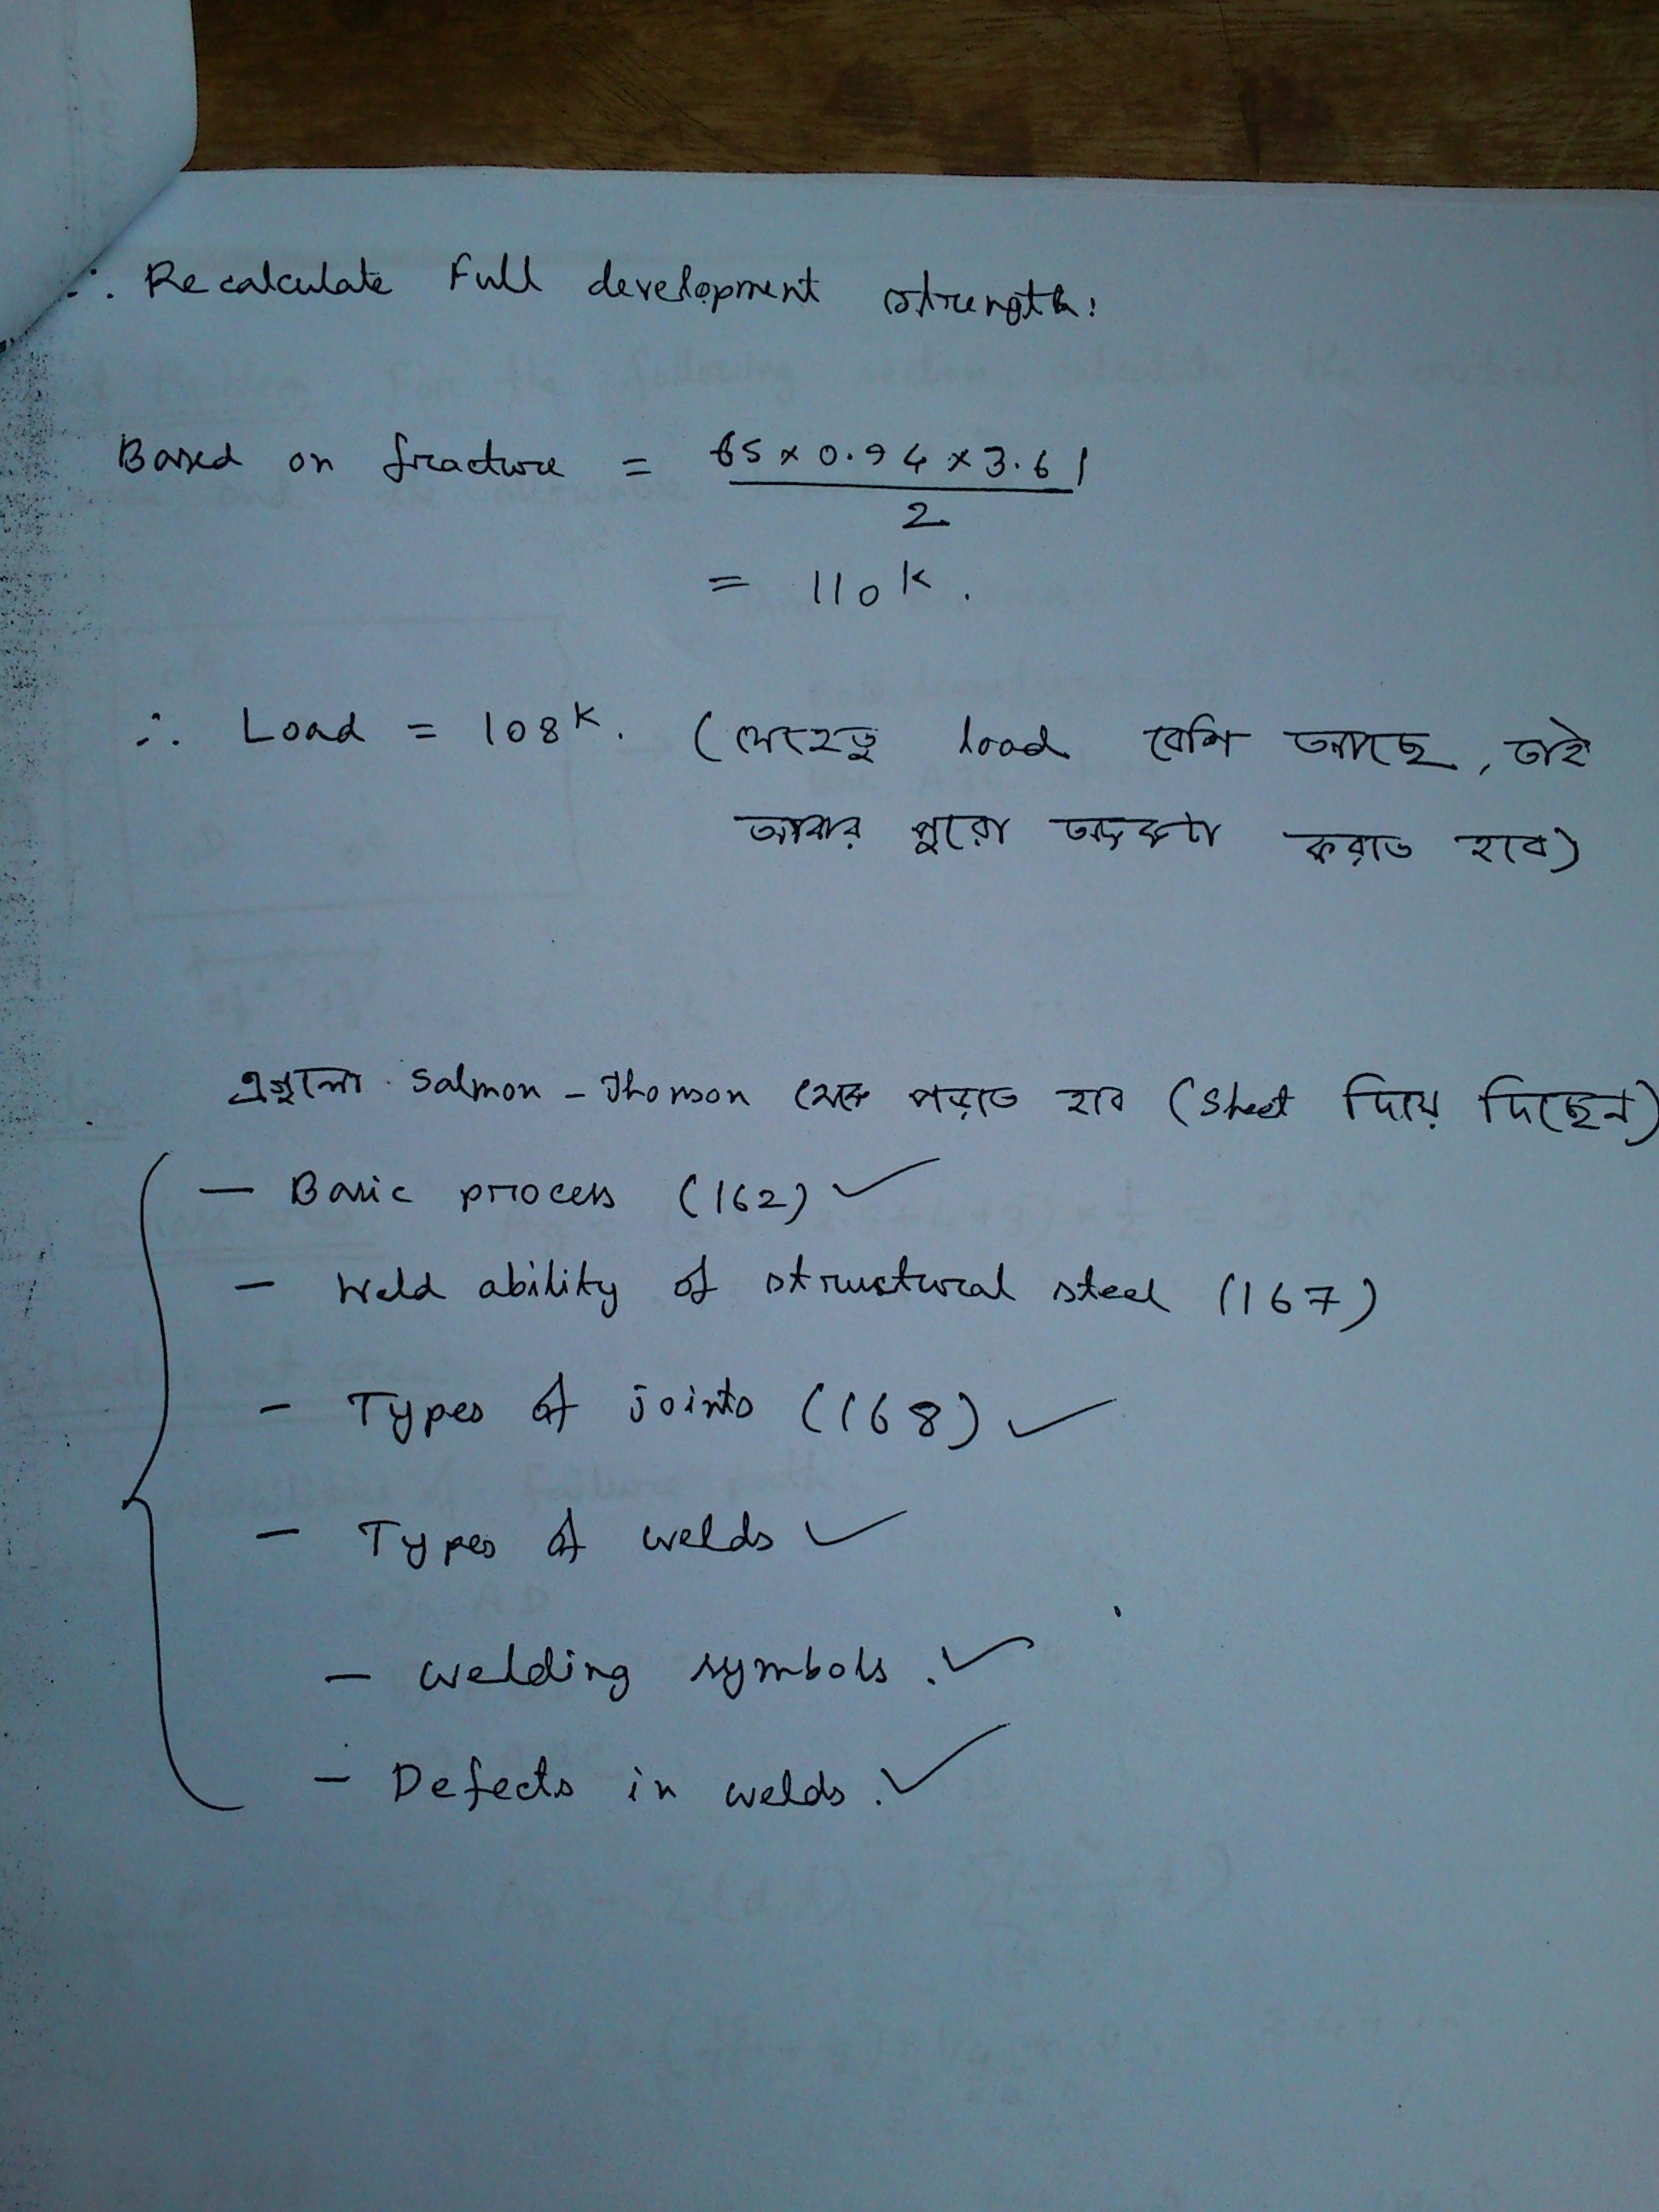 ∴ Recalculate Full development strength:
Based on fracture = 65 × 0.94 × 3.61 / 2
= 110 K.
∴ Load = 108 K. (যেহেতু load বেশি আছে, তাই
আবার পুরো অংকটা করতে হবে)
এগুলো Salmon - Jhonson থেকে পড়তে হবে (Sheet দিয়ে দিছেন)
— Basic process (162) ✓
— Weld ability of structural steel (167)
— Types of joints (168) ✓
— Types of welds ✓
— Welding symbols. ✓
— Defects in welds. ✓